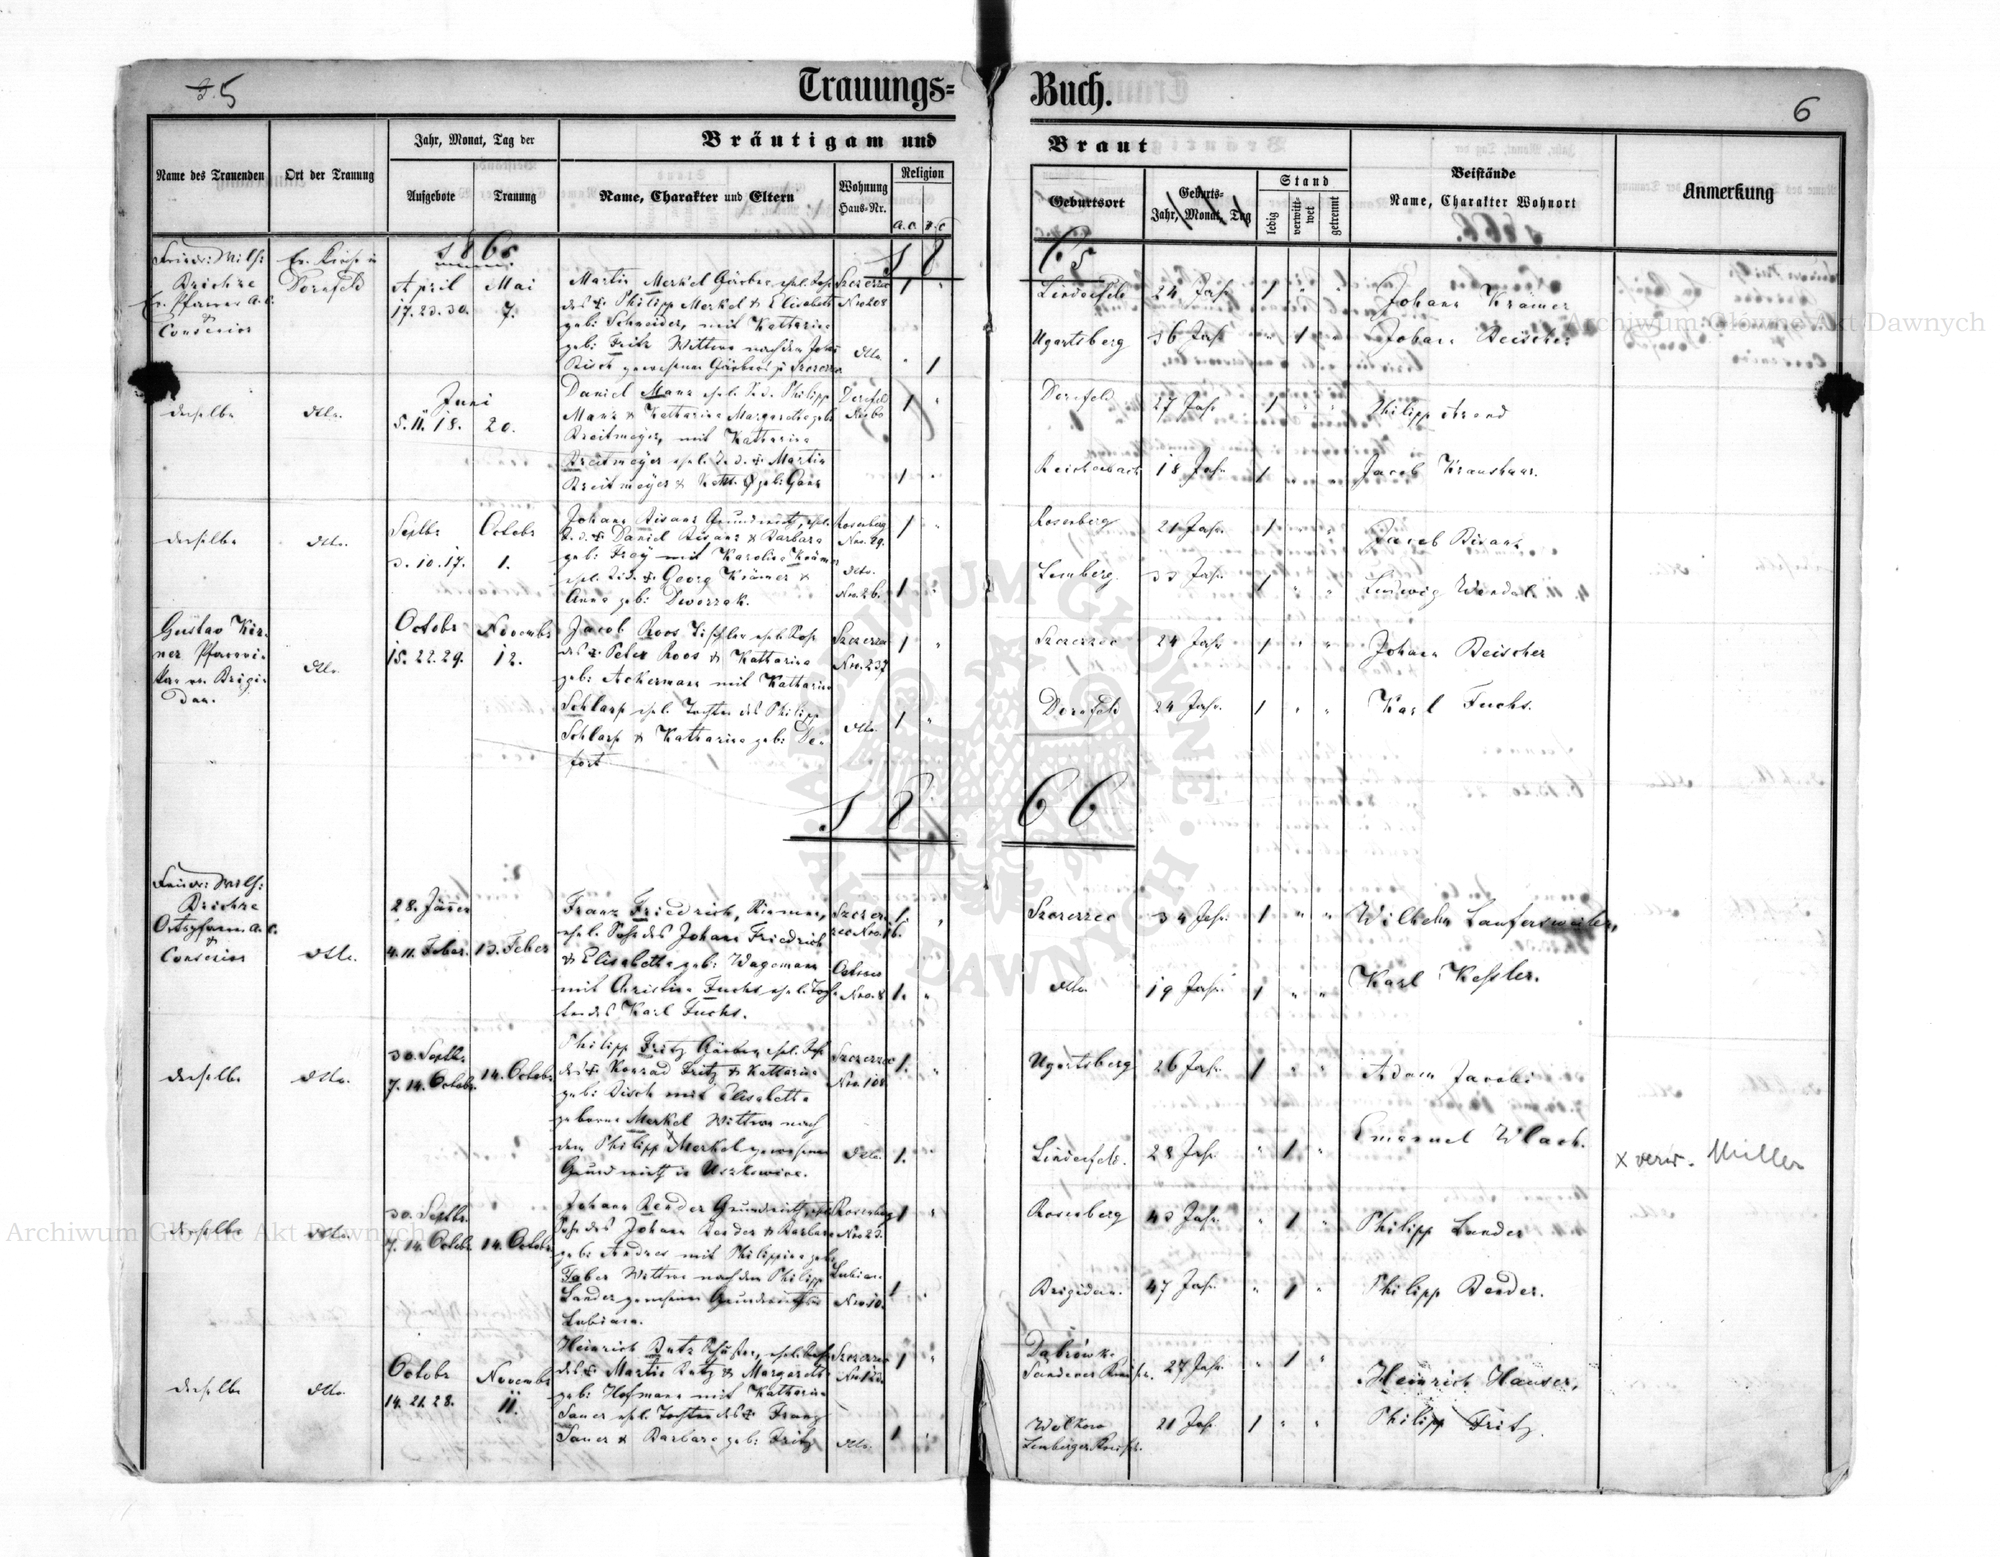 5
Trauungs=
Buch.
6
Name des Trauenden
Ort der Trauung
Jahr, Monat, Tag der
Aufgebote
Trauung
Bräutigam und
Name, Charakter und Eltern
Wohnung
Haus-Nr.
Religion
A.C.
H.C.
Braut
Geburtsort
Geburts-
Jahr, Monat, Tag
Stand
ledig
verwitt-
wet
getrennt
Beistände
Name, Charakter Wohnort
Anmerkung
1865
Friedr: Wilh:
Ev. Pfarrer A.C.
&
Consenior
Ev. Kirche in
Dornfeld
April
17. 23. 30.
Mai
7.
Martin Merkel Gärber, ehel. Sohn
des Philipp Merkel & Elisabeth
geb: Schneider, mit Katharina
geb: Fritz Wittwe nach dem Joh:
Szczerzec
No 208
dtto.
Lindenfeld
24 Jahr
1
Johann Krämer
Ugartsberg
36 Jahr
1
Johann Beischer
derselbe
dtto.
Juni
5. 11. 18.
20.
Daniel Manz ehel. S. d. Philipp
Manz & Katharina Margaretha geb.
Breitmeyer, mit Katharina
Breitmeyer ehel. T. d. Martin
Breitmeyer & Kath. geb: Ganz
Dornfeld
Dornfeld
27 Jahr
1
Philipp Arend
Reichenbach
18 Jahr
1
Jacob Kraushaar.
derselbe
dtto.
Septbr
3. 10. 17.
Octobr
1.
Johann Bisanz Grundwirth, ehel.
S. d. Daniel Bisanz & Barbara
geb: Frey mit Karolina Krämer
ehel. T. d. Georg Krämer &
Anna geb: Dworzak.
Rosenberg
Nro. 29.
dtto.
Nro. 26.
Rosenberg
21 Jahr
1
Jacob Bisanz
Lemberg
33 Jahr
1
Ludwig Wendel
Gustav
dtto.
Octobr
15. 22. 29.
Novembr
12.
Jacob Roos Tischler ehel. Sohn
des Peter Roos & Katharina
geb: Ackermann mit Katharina
Schlarp ehel. Tochter des Philipp
Schlarp & Katharina geb: De-
fort
Szczerzec
Nro. 237
dtto.
Szczerzec
24 Jahr
1
Johann Beischer
Dornfeld
24 Jahr
1
Karl Fuchs.
1866
Friedr: Wilh:
Ortspfarrer A.C.
&
Consenior
dtto.
28. Jänner
4. 11. Feber.
13. Feber
Franz Friedrich, Riemer,
ehel. Sohn des Johann Friedrich
& Elisabetha geb: Wagemann
mit Christina Fuchs ehel. Toch-
ter des Karl Fuchs.
Szczerzec
34 Jahr
1
Wilhelm Laufersweiler,
dtto.
19 Jahr
1
Karl Kessler.
derselbe
dtto.
30. Septbr.
7. 14. Octobr.
14. Octobr
Philipp Fritz Gärber, ehel. Sohn
des Konrad Fritz & Katharina
geb: Disch mit Elisabetha
geborne Merkel Wittwe nach
dem Philipp Merkel gewesenen
Grundwirth in Uszkowice.
Szczerzec
Nro. 108
dtto.
Ugartsberg
26 Jahr
1
Adam Jacobi
Lindenfeld.
28 Jahr
1
Emanuel Wlach.
x verw. Müller
derselbe
dtto.
30. Septbr.
7. 14. Octobr.
14. Octobr.
Johann Bender Grundwirth, ehel.
Sohn des Johann Bender & Barbara
geb: Andres mit Philippina geb.
Faber Wittwe nach dem Philipp
Lander gewesenen Grundwirth in
Lubiana.
Rosenberg
Nro 23.
Rosenberg
43 Jahr
1
Philipp Lander
Brigidau.
47 Jahr
1
Philipp Bender.
derselbe
dtto.
Octobr
14. 21. 28.
Novembr
11.
Heinrich Butz Schuster, ehel. Sohn
des Martin Butz & Margareth
geb: Hofmann mit Katharina
Sauer ehel. Tochter des Franz
Sauer & Barbara geb: Fritz
Szczerzec
dtto.
27 Jahr
1
Heinrich Hauser,
21 Jahr
1
Philipp Fritz.
Archiwum Główne Akt Dawnych
Archiwum Główne Akt Dawnych
ARCHIWUM GŁÓWNE AKT DAWNYCH